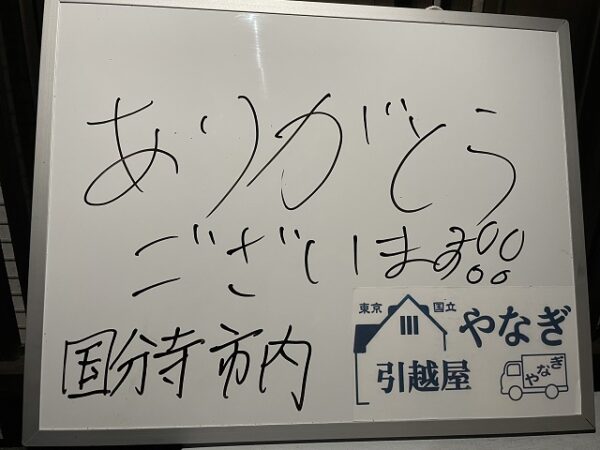 ありがとう
ございます!!
国分寺市内
東京 国立
やなぎ
引越屋
やなぎ